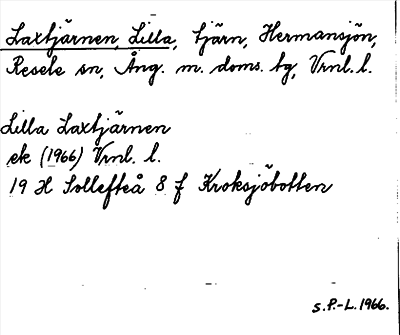 Laxtjärnen, Lilla, tjärn, Hermansjön,
Resele sn, Ång. m. doms. tg, Vrnl. l.
Lilla Laxtjärnen
ek (1966) Vrnl. l.
19 H Sollefteå 8 f Kroksjöbotten
S.P.-L. 1966.